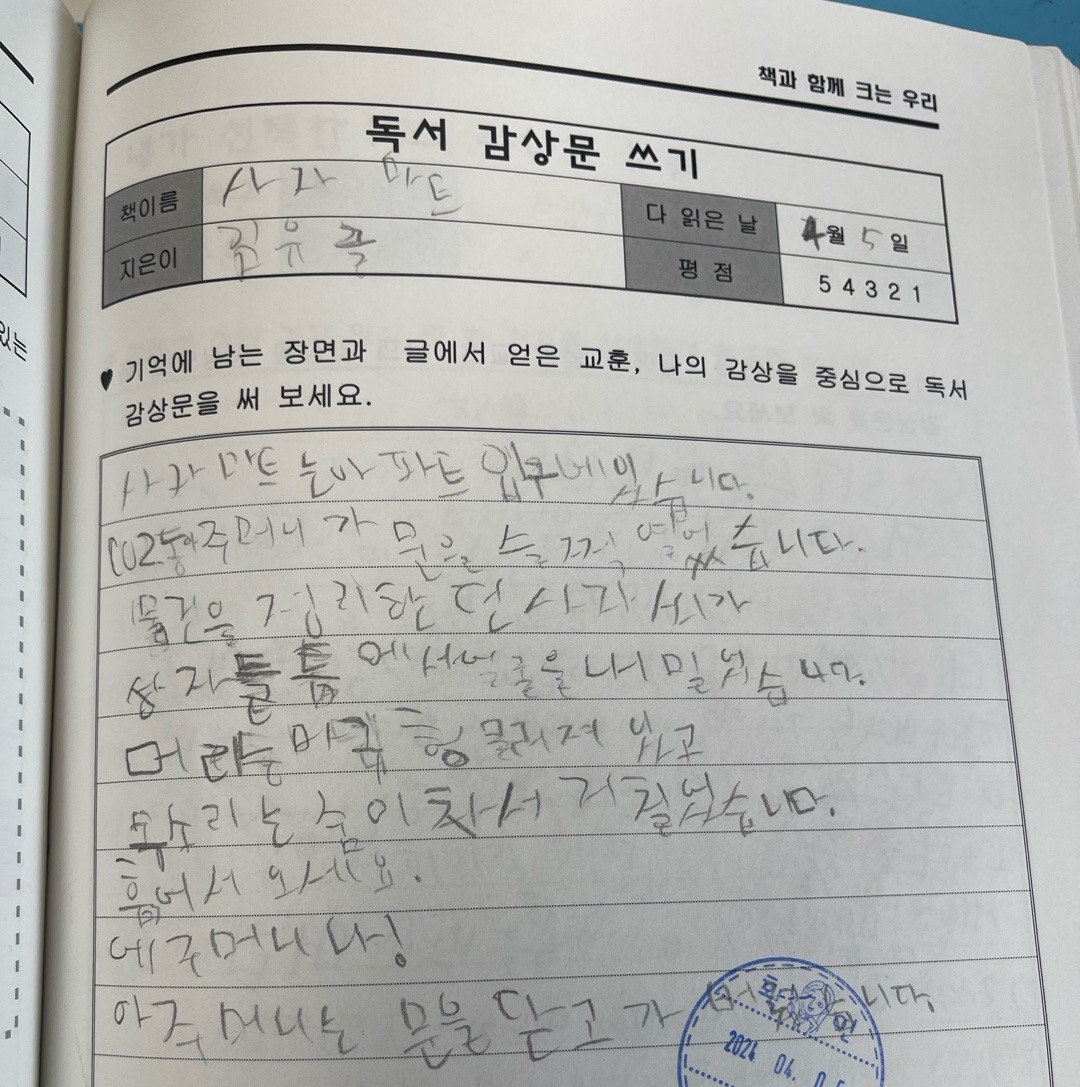 책과 함께 크는 우리
독서 감상문 쓰기
책이름 사자 마트 다 읽은 날 4월 5일
지은이 김유 글 평 점 5 4 3 2 1
♥ 기억에 남는 장면과 글에서 얻은 교훈, 나의 감상을 중심으로 독서
감상문을 써 보세요.
사자 마트 는 아 파트 입구에 있습니다.
102동 아주머니 가 문을 슬쩍 열었습니다.
물건을 정리하던 사자 씨가
상자들 틈 에서 얼굴을 내 밀었습니다.
머리는 마구 헝클러져 있고
목소리는 숨이 차서 거칠었습니다.
흠 어서 오세요.
에구머니나!
아주머니는 문을 닫고 가 버렸습니다.
2024. 04. 0
있는